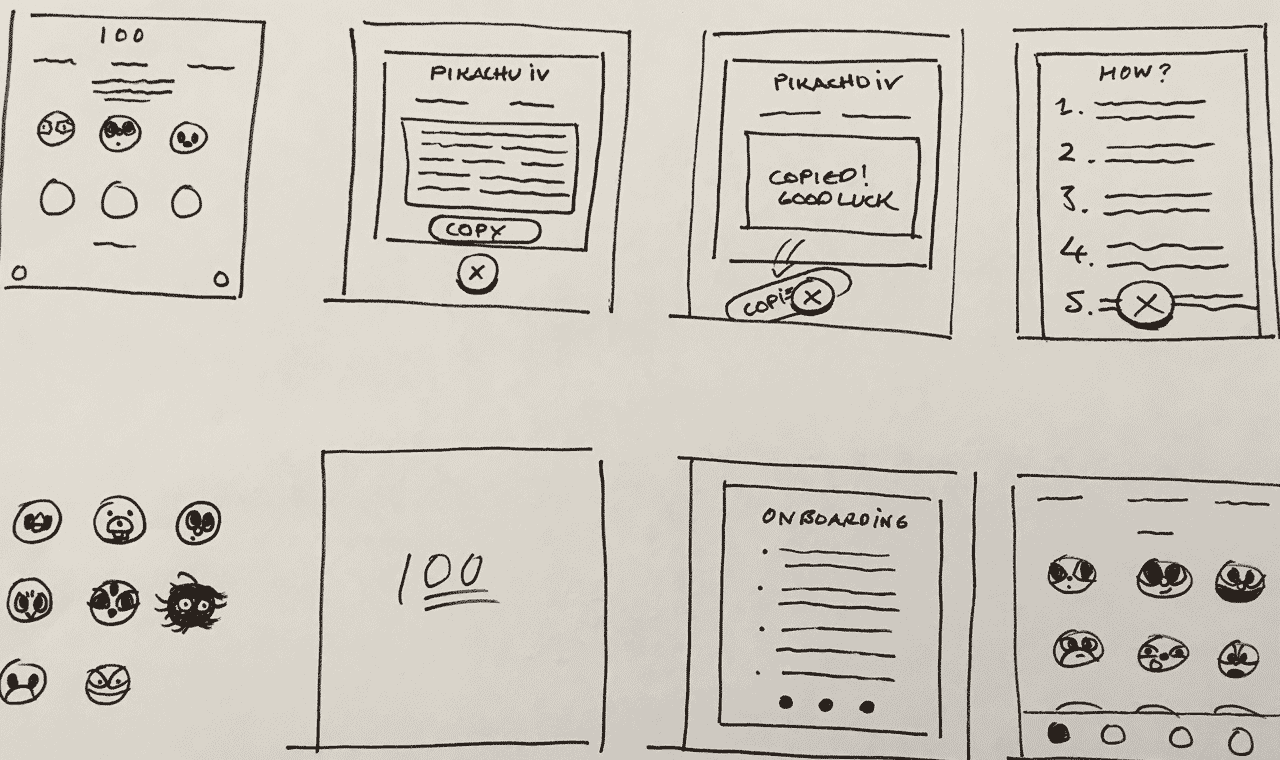 100
PIKACHU IV
COPY
X
PIKACHU IV
COPIED!
GOOD LUCK
COPIE
X
HOW?
1.
2.
3.
4.
5.
X
100
ONBOARDING